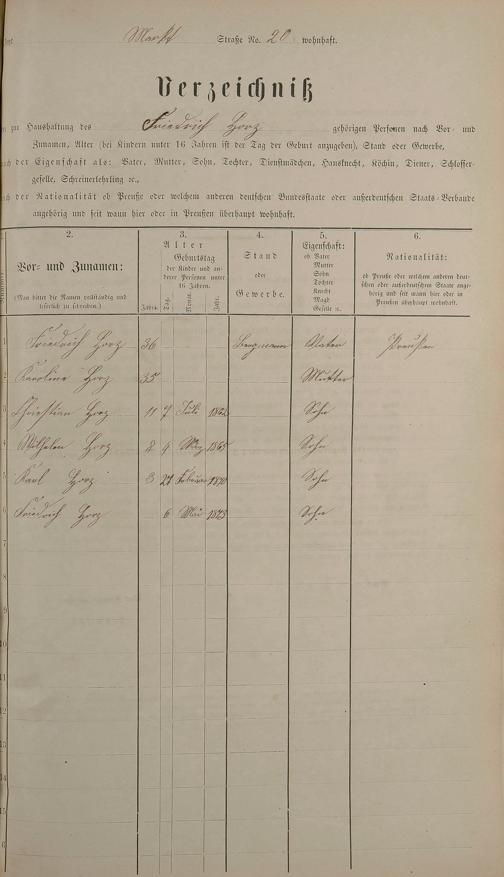 Markt Straße No. 20 wohnhaft.
Verzeichniß
zur Haushaltung des Friedrich Horz gehörigen Personen nach Vor- und
Zunamen, Alter (bei Kindern unter 16 Jahren ist der Tag der Geburt anzugeben), Stand oder Gewerbe,
nach der Eigenschaft als: Vater, Mutter, Sohn, Tochter, Dienstmädchen, Hausknecht, Köchin, Diener, Schlosser-
geselle, Schreinerlehrling ꝛc.,
nach der Nationalität ob Preuße oder welchem anderen deutschen Bundesstaate oder außerdeutschen Staats-Verbande
angehörig und seit wann hier oder in Preußen überhaupt wohnhaft.
2. 3. 4. 5. 6.
Vor- und Zunamen:
(Man bittet die Namen vollständig und
leserlich zu schreiben.)
Alter
Geburtstag
der Kinder und an-
derer Personen unter
16 Jahren.
Jahre. Tag. Monat. Jahr.
Stand
oder
Gewerbe.
Eigenschaft:
ob Vater
Mutter
Sohn
Tochter
Knecht
Magd
Geselle ꝛc.
Nationalität:
ob Preuße oder welchem anderen deut-
schen oder außerdeutschen Staate ange-
hörig und seit wann hier oder in
Preußen überhaupt wohnhaft.
1 Friedrich Horz 36 Bergmann Vater Preußen
2 Karoline Horz 35 Mutter
3 Christian Horz 11 7 Juli Sohn
4 Wilhelm Horz 8 9 May 1865 Sohn
5 Karl Horz 3 27 Februar 1870 Sohn
6 Friedrich Horz 6 Mai 1873 Sohn
7
8
9
10
11
12
13
14
15
6